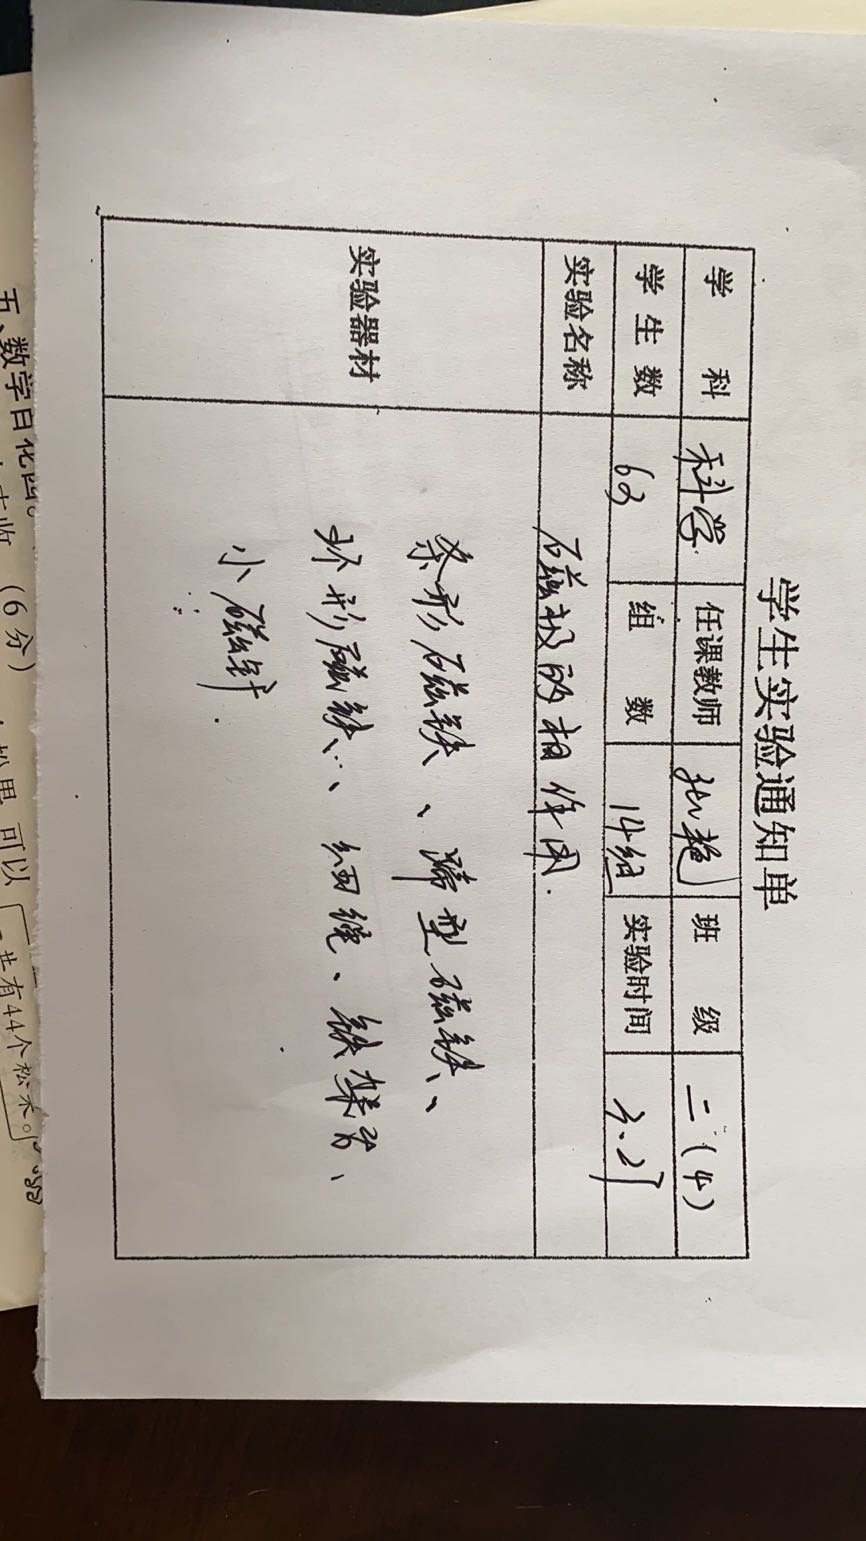 学生实验通知单
学 科 科学 任课教师 张艳 班 级 二(4)
学生数 63 组 数 14组 实验时间
实验名称 磁极的相作用.
实验器材 条形磁铁、蹄型磁铁、
环形磁铁、细绳、铁架台、
小磁针.
五、数学日记
(6分)
可以
一共有44个松果。